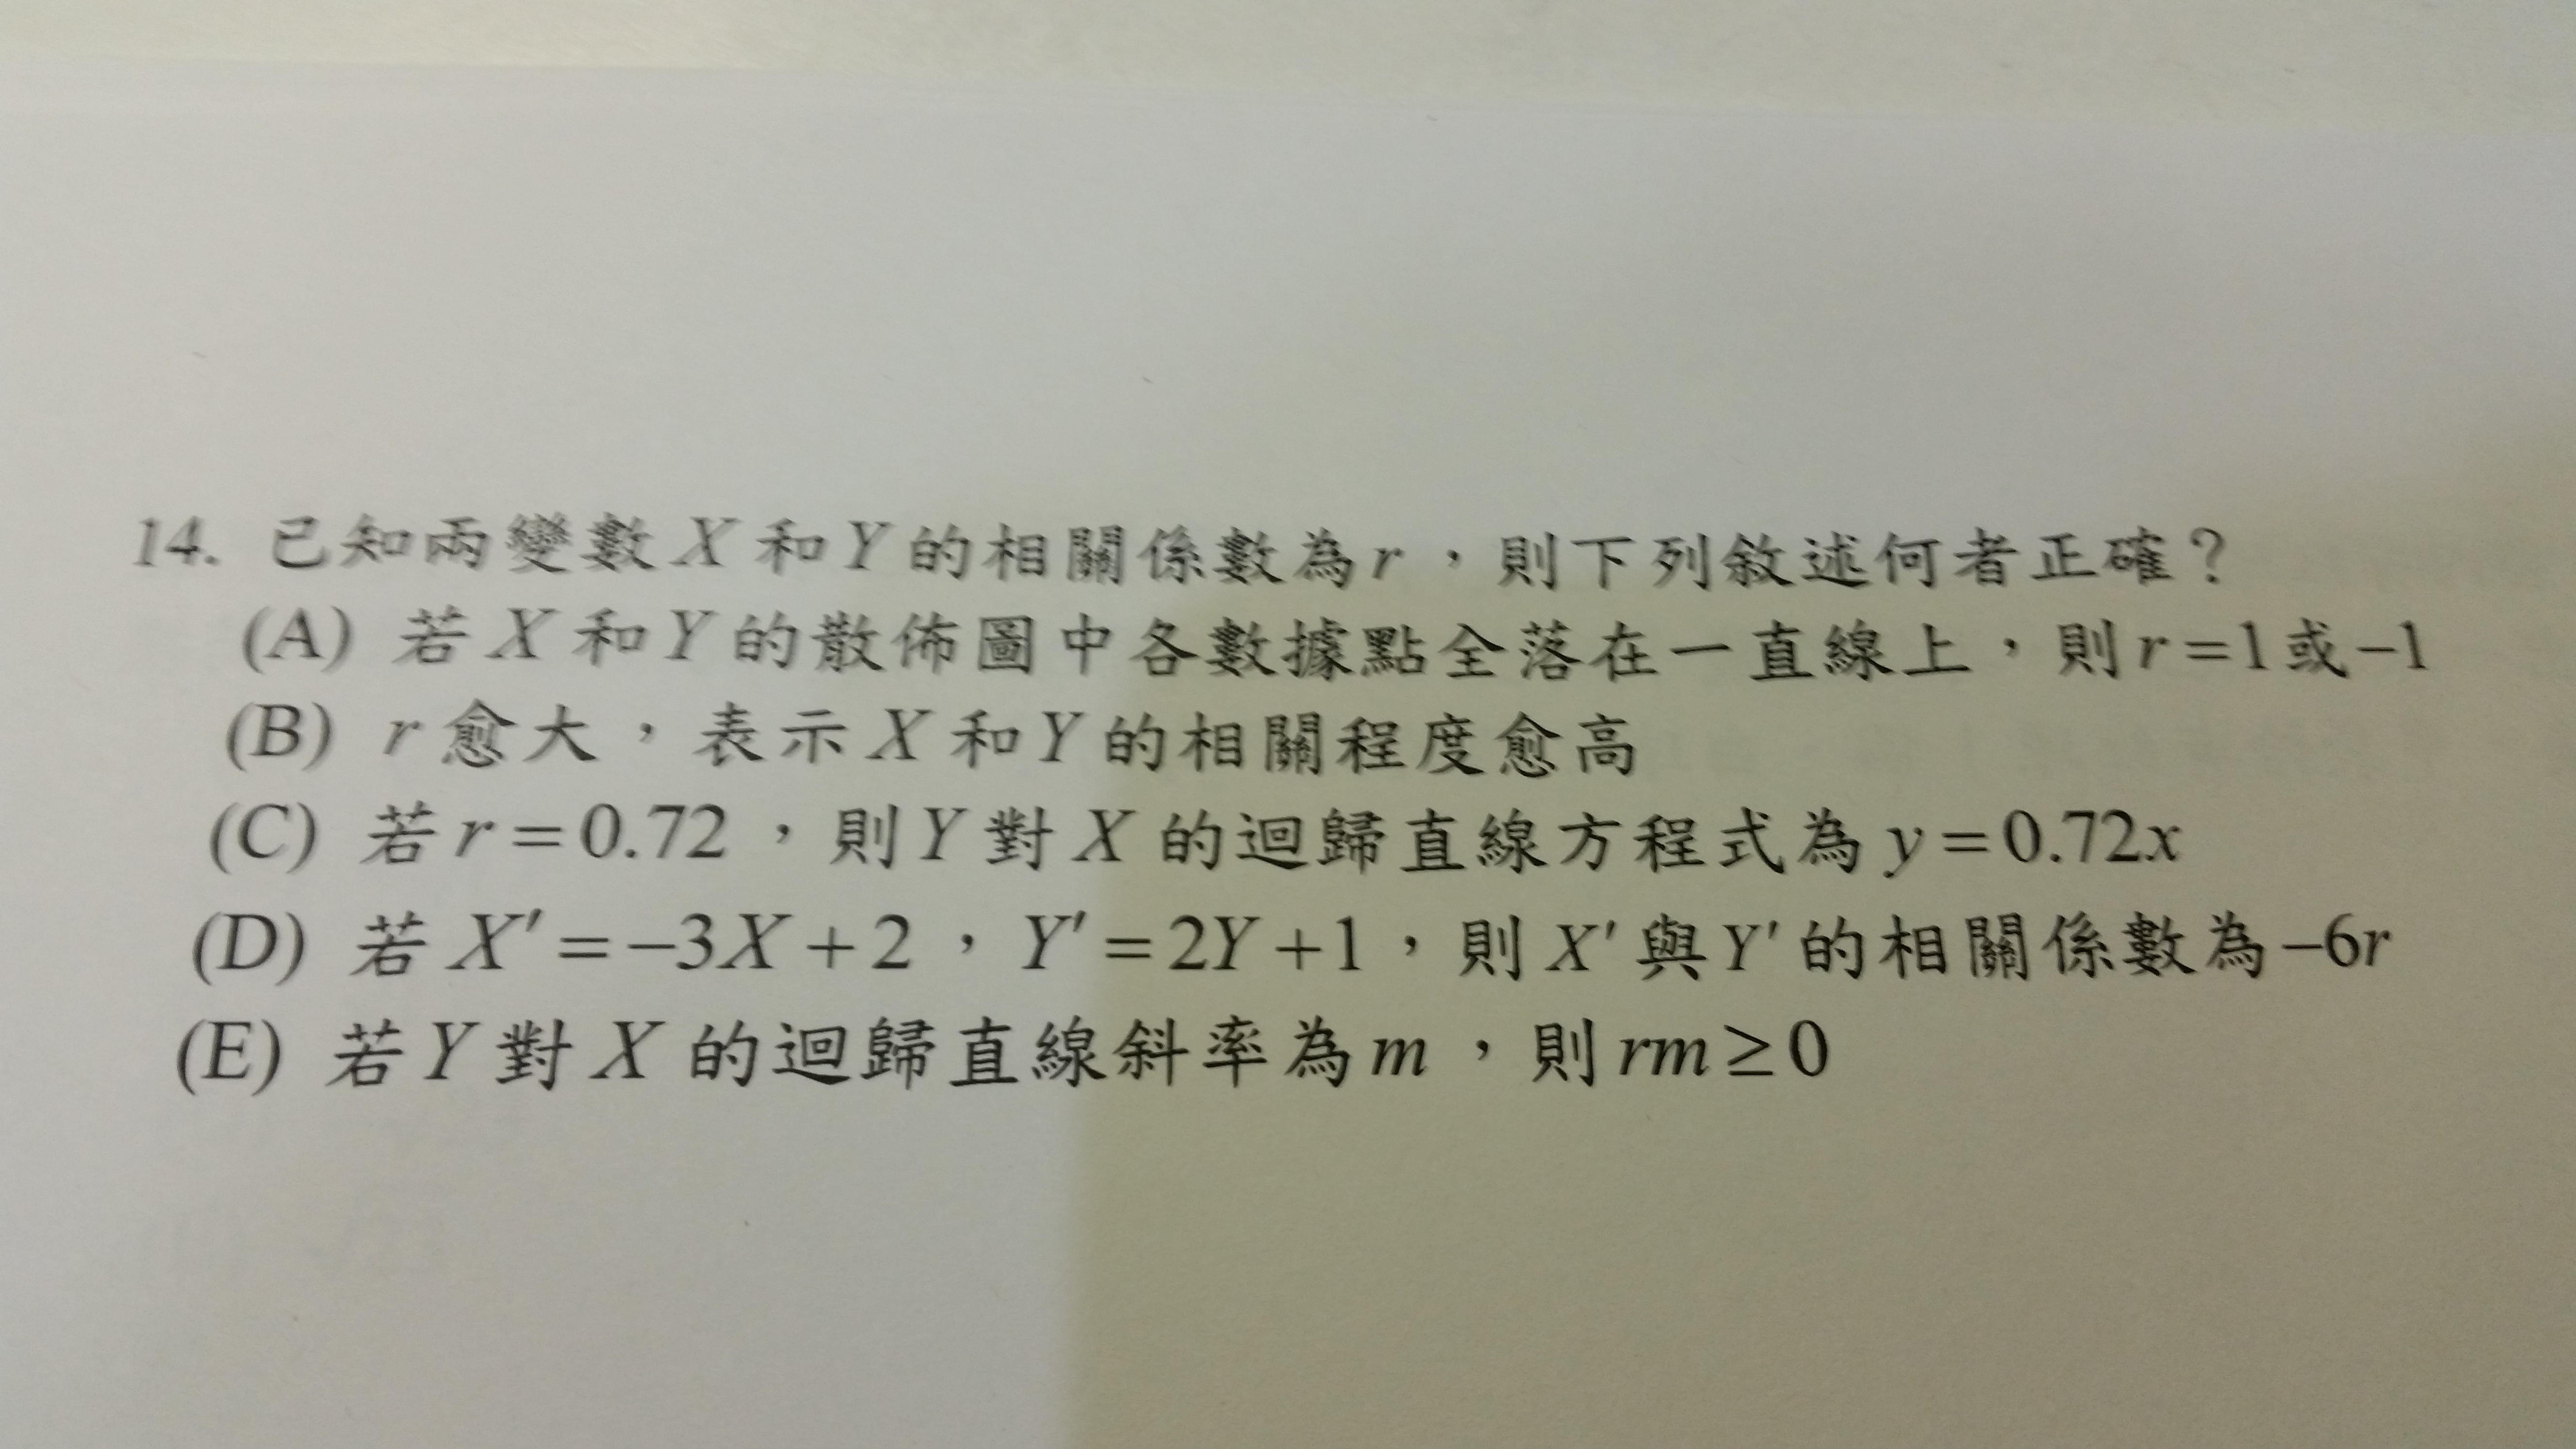 14. 已知兩變數 X 和 Y 的相關係數為 r，則下列敘述何者正確？
(A) 若 X 和 Y 的散佈圖中各數據點全落在一直線上，則 r=1 或 -1
(B) r 愈大，表示 X 和 Y 的相關程度愈高
(C) 若 r=0.72，則 Y 對 X 的迴歸直線方程式為 y=0.72x
(D) 若 X'=-3X+2，Y'=2Y+1，則 X' 與 Y' 的相關係數為 -6r
(E) 若 Y 對 X 的迴歸直線斜率為 m，則 rm≥0